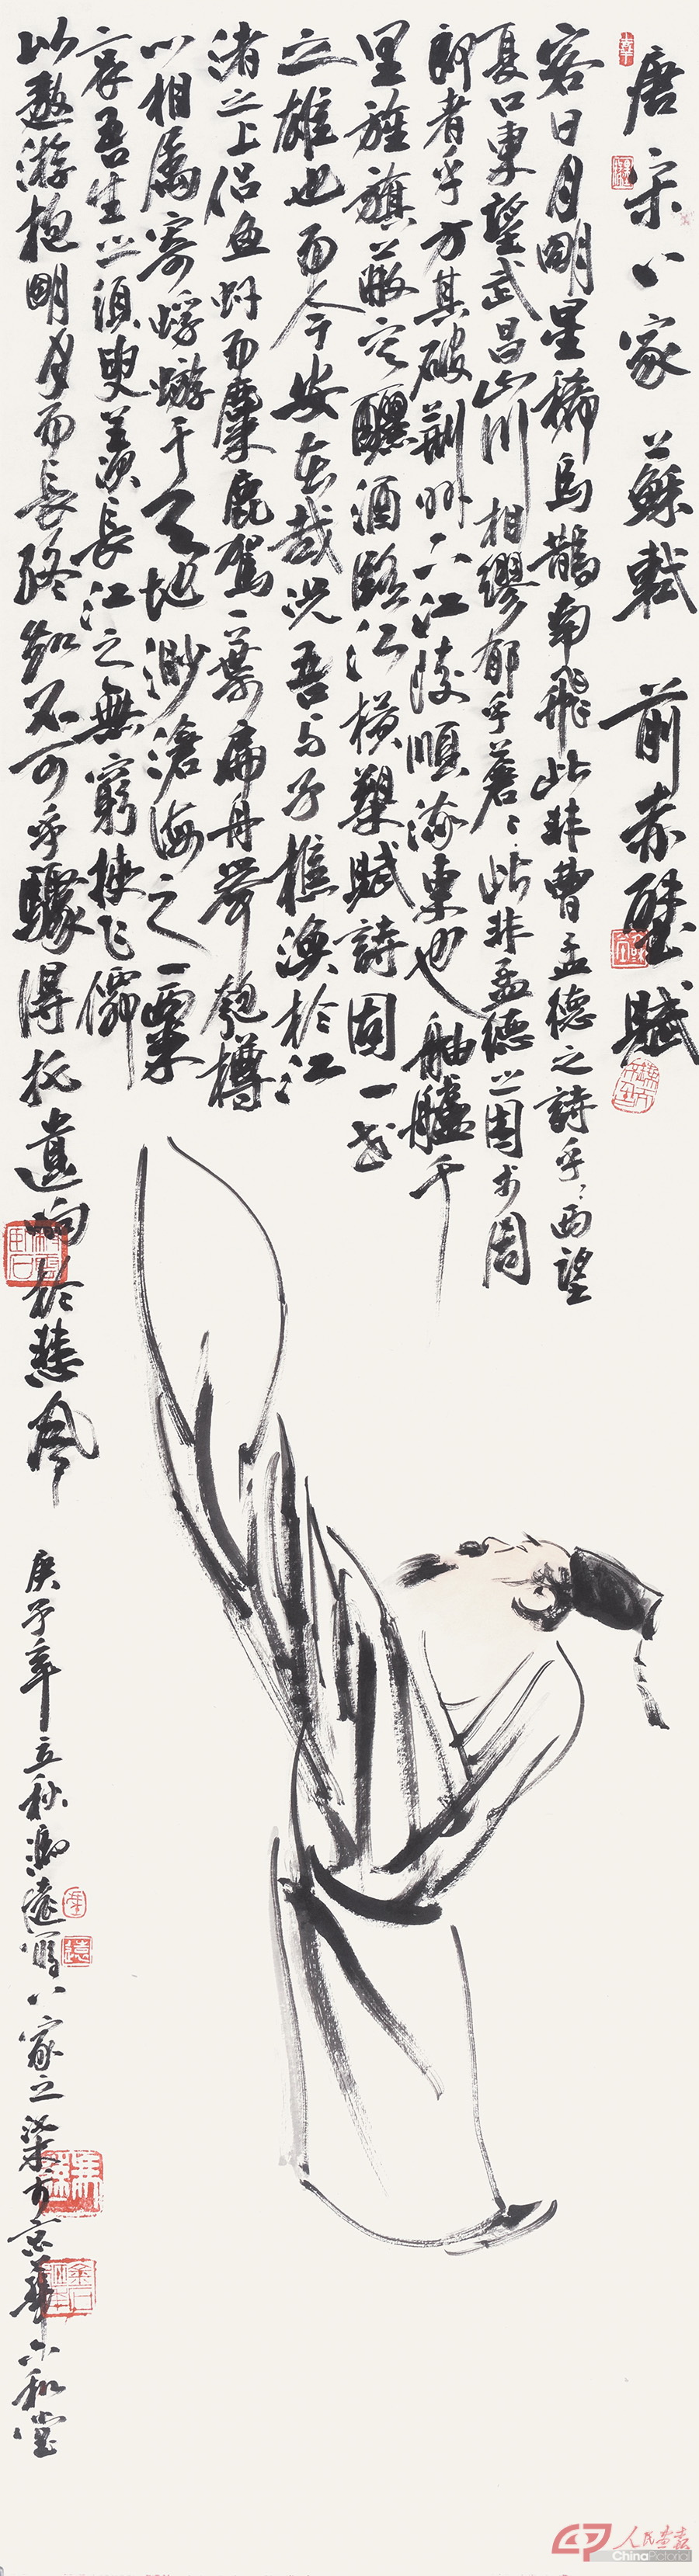 唐宋八家 蘇軾 前赤壁賦
客曰月明星稀烏鵲南飛此非曹孟德之詩乎西望
夏口東望武昌山川相繆郁乎蒼々此非孟德之困於周
郎者乎方其破荊州下江陵順流東也舳艫千
里旌旗蔽空釃酒臨江橫槊賦詩固一世
之雄也而今安在哉況吾与子樵漁於江
渚之上侶魚虾而麋鹿駕一葉扁舟舉匏樽
以相屬寄蜉蝣于天地渺滄海之一粟
哀吾生之須臾羨長江之無窮挾飛僊
以遨游抱明月而長終知不可乎驟得托遺响於悲風
庚子年立秋遠寫八家之柒於京華六和堂
人民画报
ChinaPictorial